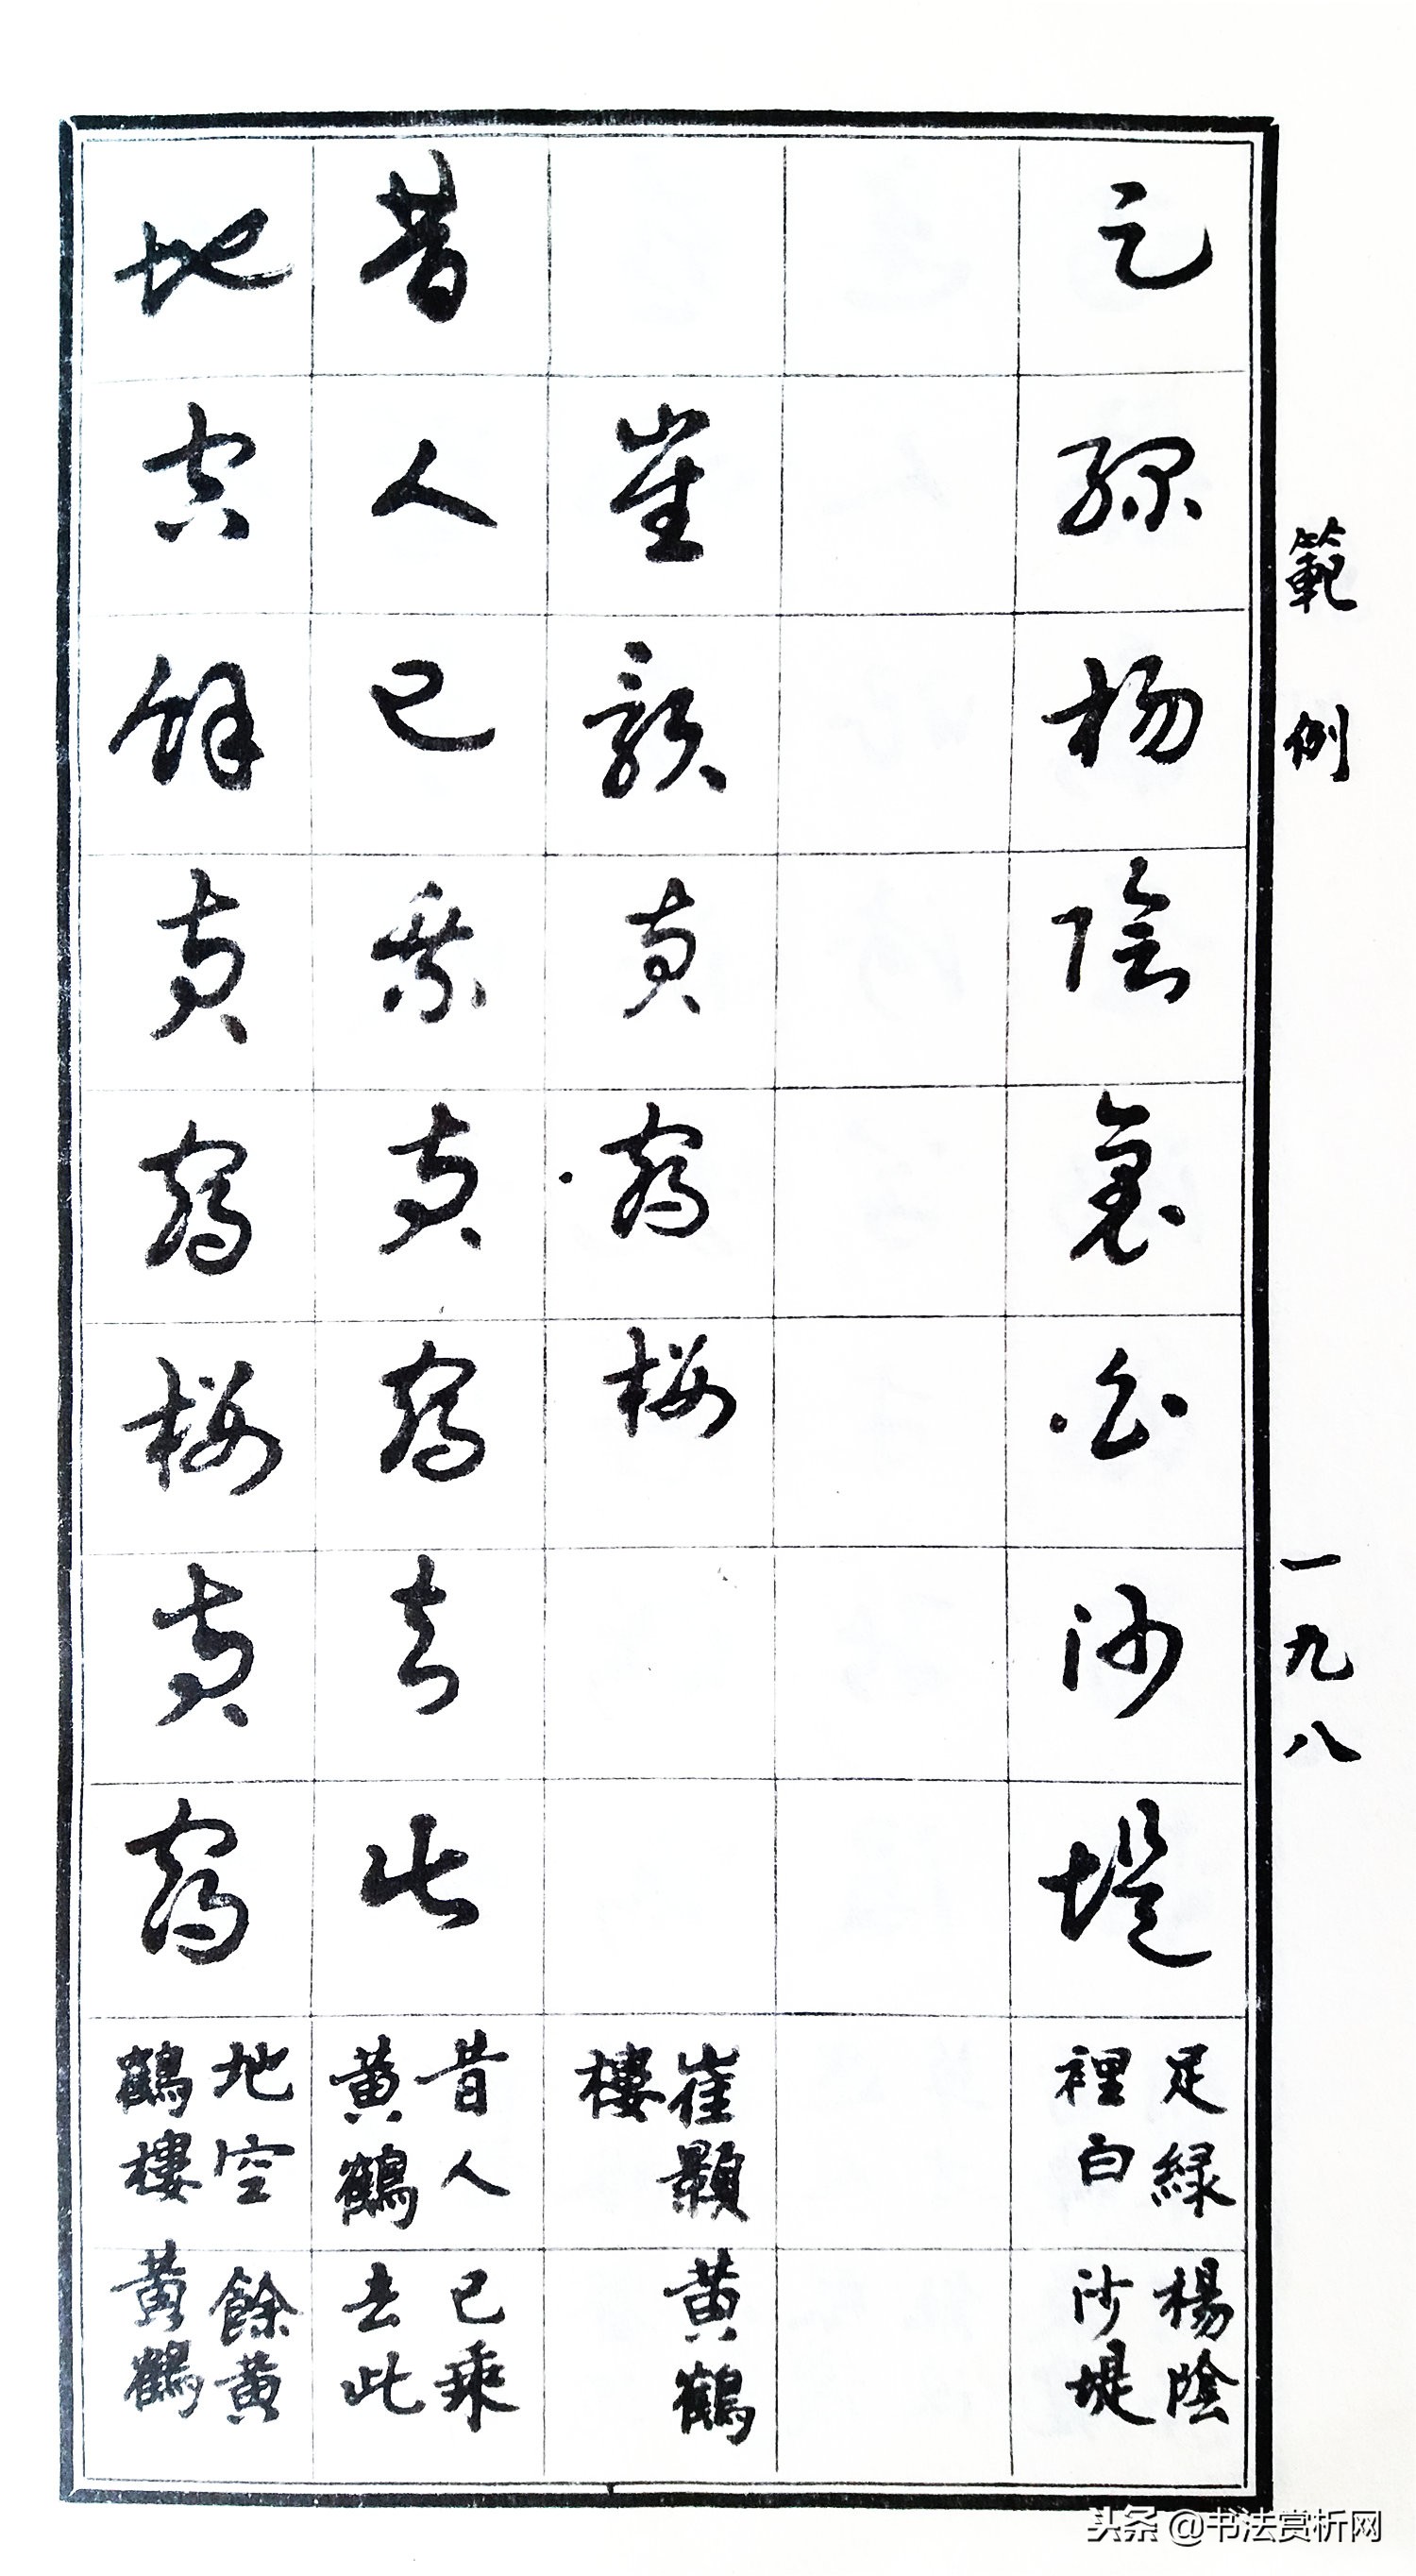 範例
一九八
足綠楊陰裏白沙堤
足綠楊陰
裡白沙堤
崔顥黃鶴樓
崔顥黃鶴
樓
昔人已乘黃鶴去此
昔人已乘
黃鶴去此
地空餘黃鶴樓黃鶴
地空餘黃
鶴樓黃鶴
头条 @书法赏析网